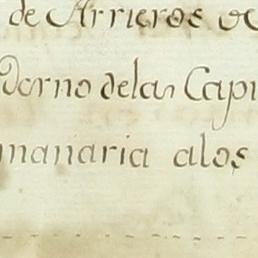 de Arrieros
dorno delas Capi
manaria alos